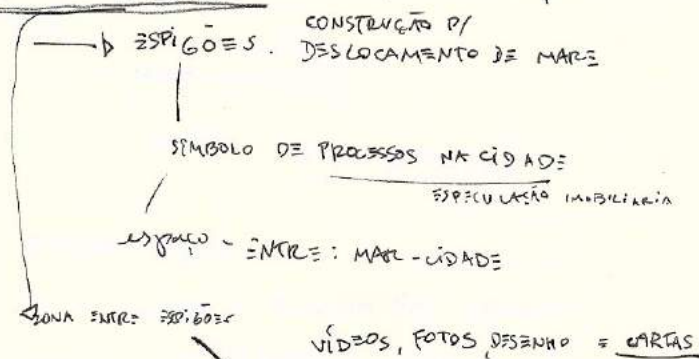 CONSTRUÇÃO P/
ESPIGÕES. DESLOCAMENTO DE MARE
SÍMBOLO DE PROCESSOS NA CIDADE
ESPECULAÇÃO IMOBILIARIA
espaço - ENTRE: MAR - CIDADE
ZONA ENTRE ESPIGÕES
VÍDEOS, FOTOS, DESENHO E CARTAS